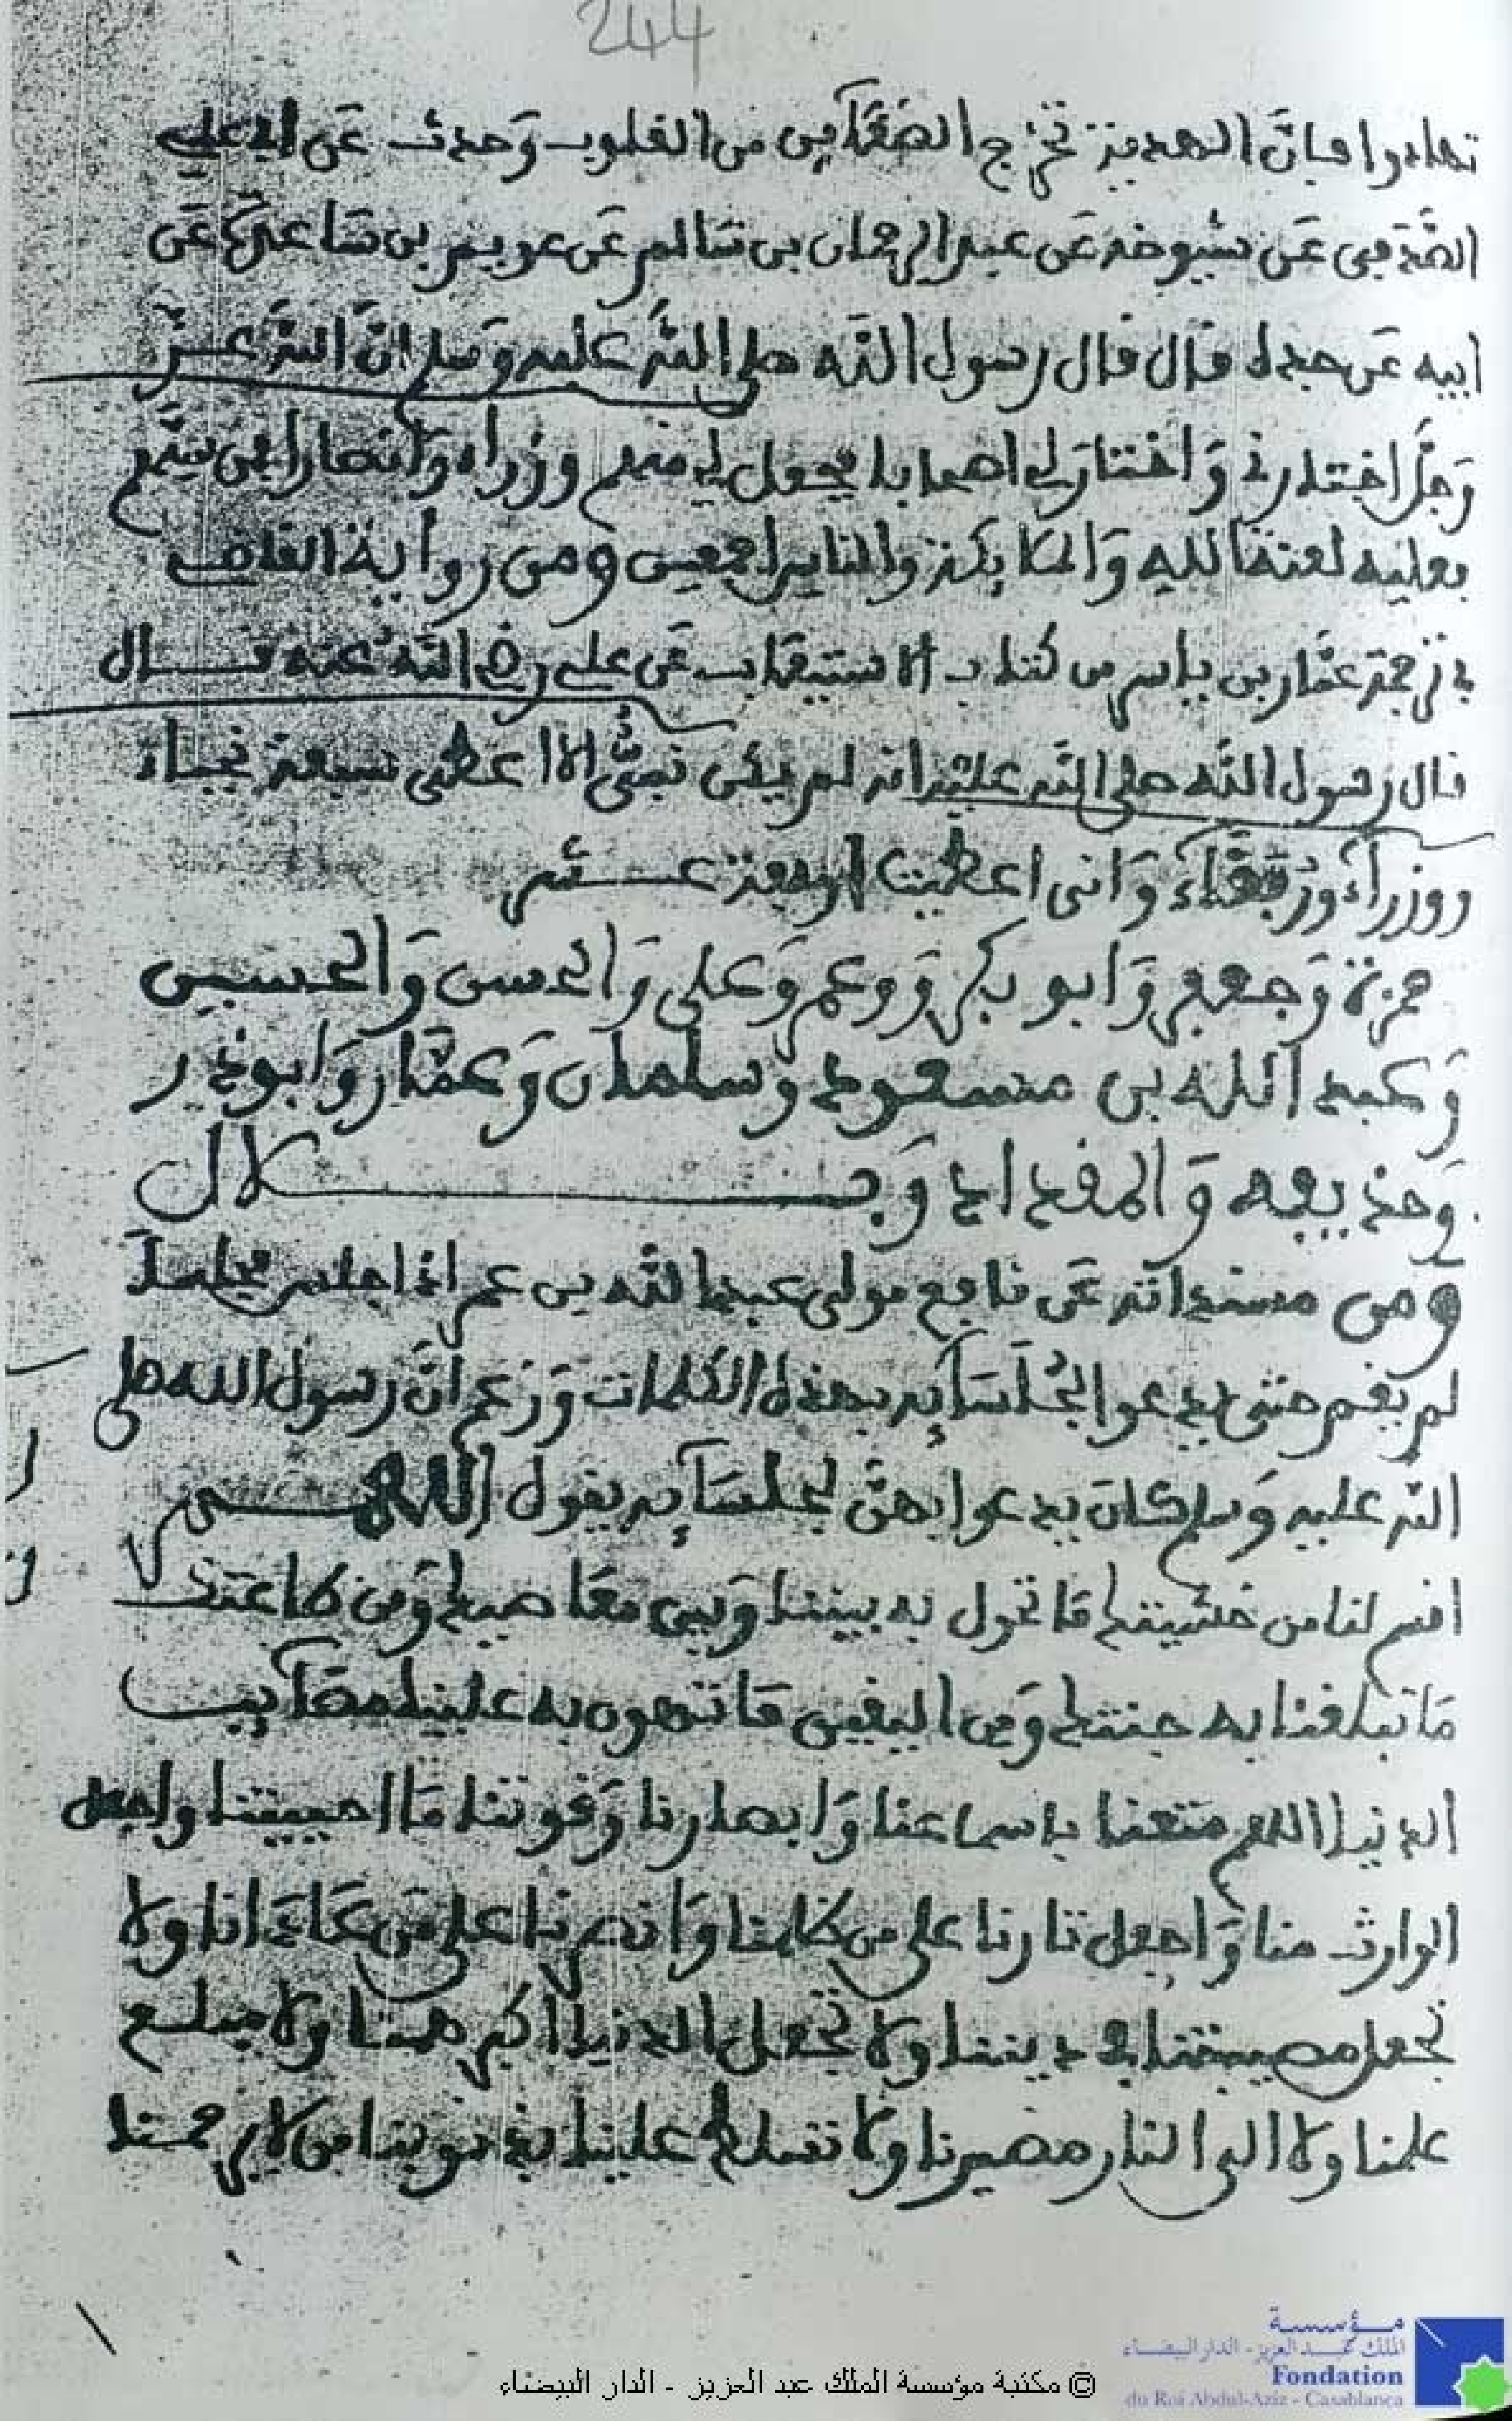 244
تهادوا فإنّ الهدية تخرج الضغآين من القلوب وَحدث عَن ابي علي
الصَّدفي عَن شيوخه عَن عبد الرحمان بن سَالم عَن عويم بن سَاعدَة عَن
ابيه عَن جده قَال قال رسول الله صلى الله عليه وَسلم انّ الله عز
وَجلّ اختارني وَاختارَ لي اصحابا فجعل لي منهم وزراء وَانصارا فمن سبّهم
فعليه لعنة الله وَالملايكة والناس اجمعين ومن رواية
في ترجمة عمّار بن ياسر من كتاب الاستيعَاب عَن علي رضي اللهُ عنه قال
قال رسول الله صلى الله عليه انه لم يكن نبيٌّ الا اعطى سبعة نجباء
ووزرآء ورفقَآء وَاني اعطيت اربعة عشر
حمزة وَجعفر وَابو بكر وَوعمر وَعلى وَالحسن وَالحسين
وَعبد الله بن مسعود وسلمان وَعمّار وَابوذر
وَحذيفه وَالمقداد وَبلال
ومن مسنده انه عَن نافع مولى عبد الله بن عمر اذا جلس مجلسا
لم يقم حتى يدعو الجُلَسَآيه بهذه الكلمات وَزعم انَّ رسول الله صلى
الله عليه وَسلم كان يدعوا بهنّ لجلسَآيه يقول اللهم
اقسم لنا من خشيتك مَا تحول به بيننا وَبين معَاصيك وَمن طاعتك
مَا تبلغنا به جنتك وَمن اليقين مَا تهون به علينا مصَآيب
الدنيا اللهم متعنا باسماعنا وَابصارنا وَقوتنا مَا احييتنا واجعل
الوارث منا وَاجعل ثارنا على من ظلمنا وَانصرنا على مَن عَادَانا ولا
تجعل مصيبتنا في ديننا ولا تجعل الدنيا اكبر همنا ولا مبلغ
علمنا ولا الى النار مصيرنا ولا تسلط علينا بذنوبنا من لا يرحمنا
مؤسسة
الملك عبد العزيز - الدار البيضاء
Fondation
du Roi Abdul-Aziz - Casablanca
© مكتبة مؤسسة الملك عبد العزيز - الدار البيضاء